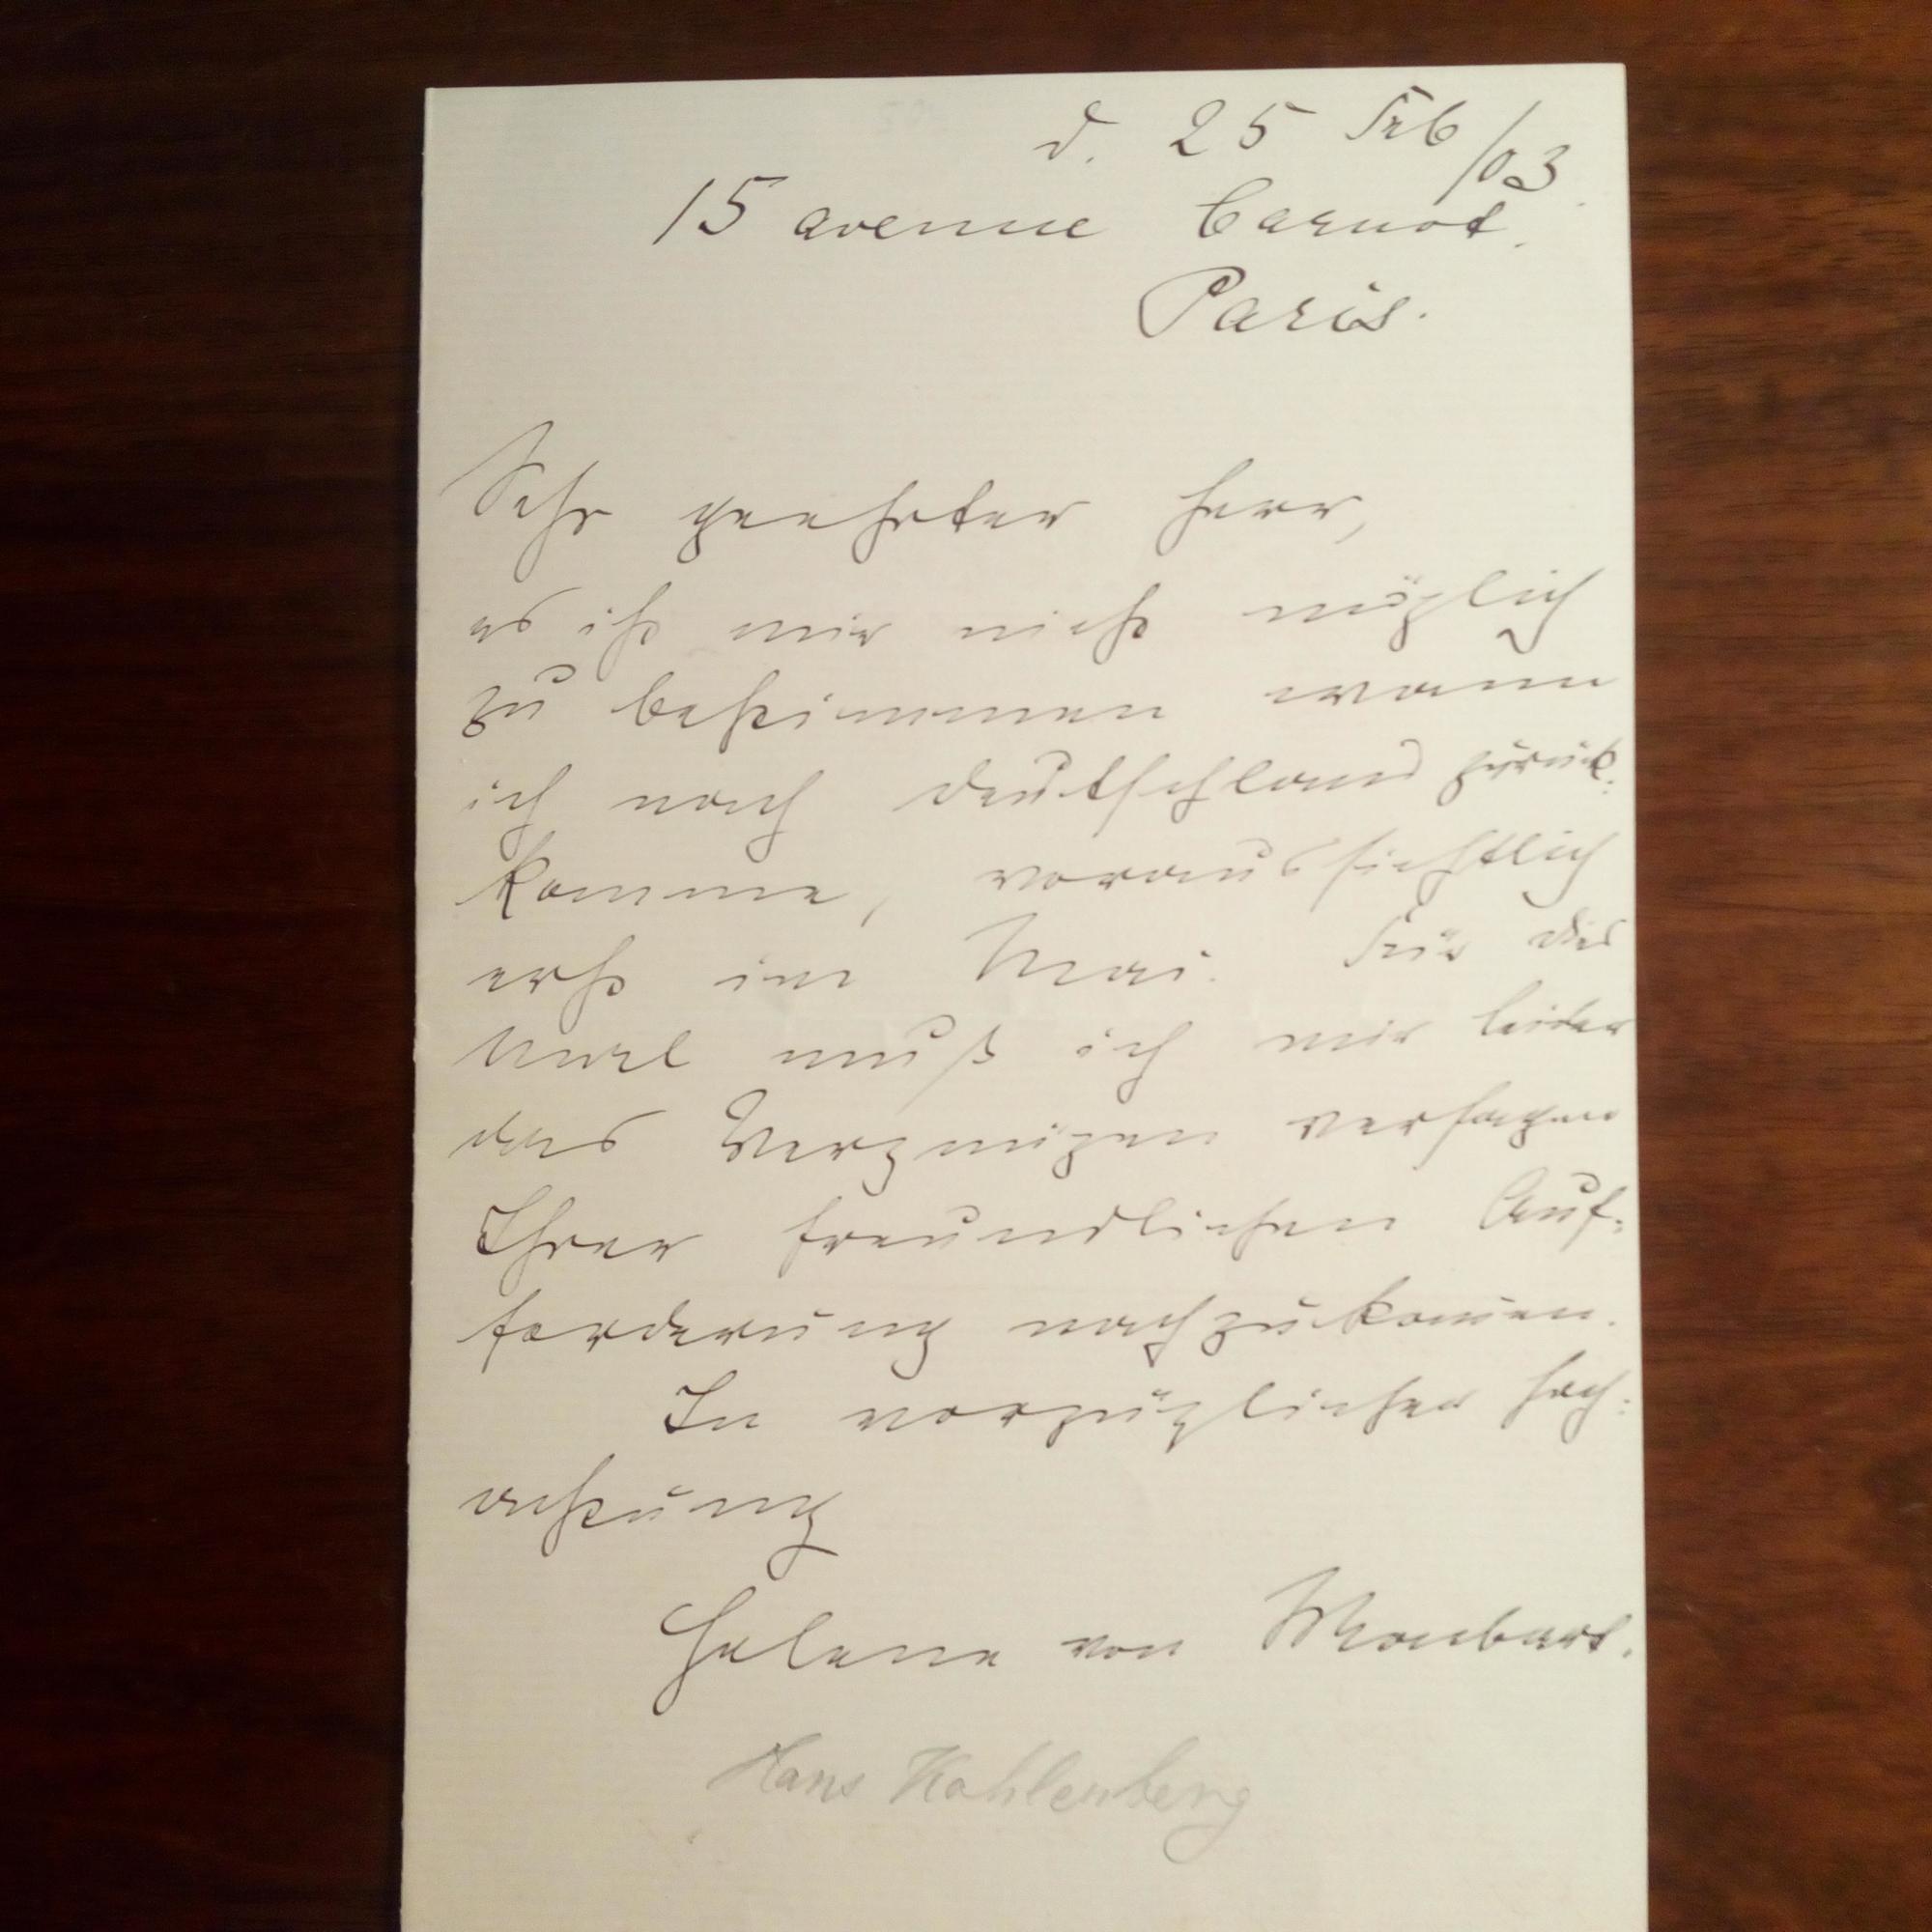 d. 25 Feb/03.
15 avenue Carnot.
Paris.
Sehr geehrter Herr,
es ist mir nicht möglich
zu bestimmen wann
ich nach Deutschland zurück-
komme, voraussichtlich
erst im Mai. Für dies
Mal muß ich mir leider
das Vergnügen versagen
Ihrer freundlichen Auf-
forderung nachzukom̄en.
In vorzüglicher Hoch-
achtung
Helene von Monbart.
Hans Kahlenberg